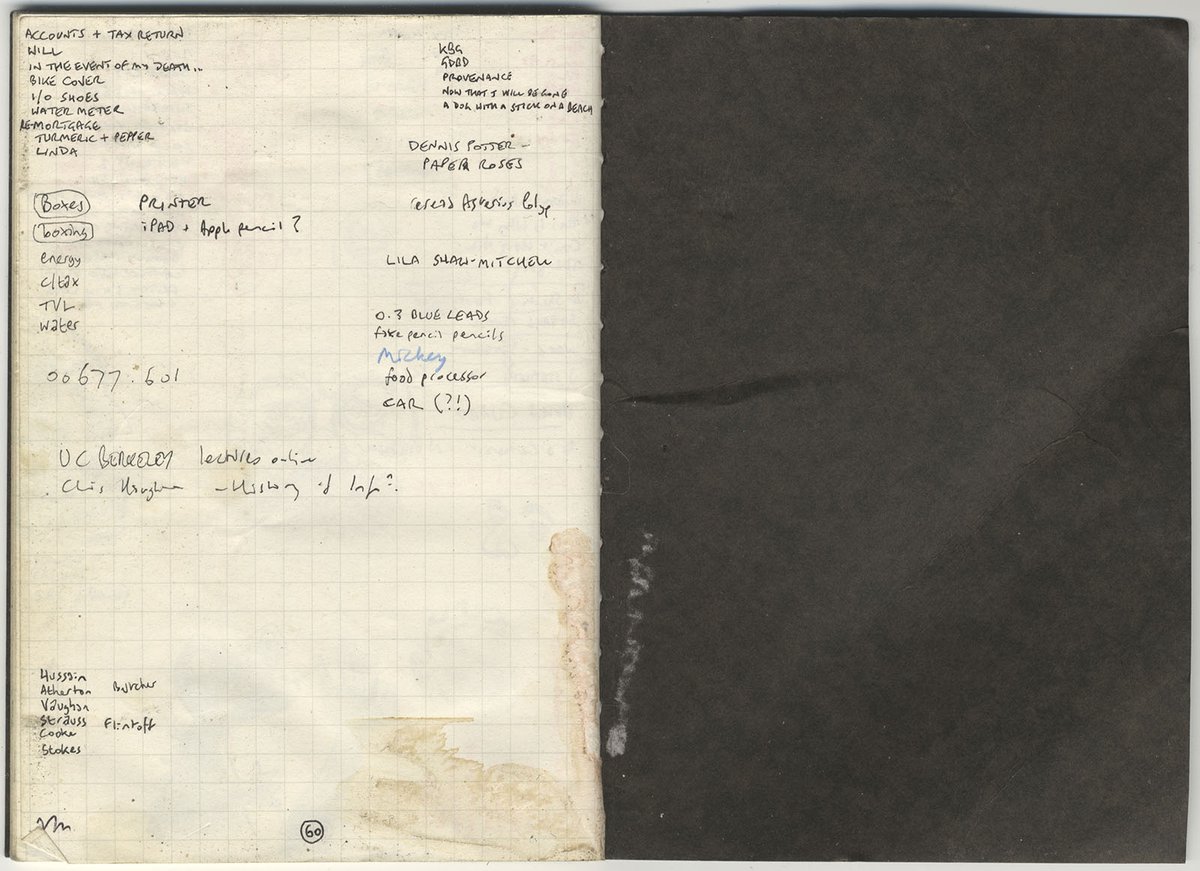 ACCOUNTS + TAX RETURN
WILL
IN THE EVENT OF MY DEATH...
BIKE COVER
I/O SHOES
WATER METER
RE-MORTGAGE
TURMERIC + PEPPER
LINDA
KBG
GDBD
PROVENANCE
NOW THAT I WILL BE GONE
A DOG WITH A STICK ON A BEACH
DENNIS POTTER -
PAPER ROSES
Boxes
PRINTER
reread Asterios Polyp
boxing
iPAD + Apple pencil?
energy
LILA SHAW-MITCHELL
c/tax
TVL
water
0.3 BLUE LEADS
fake pencil pencils
Mickey
00677.601
food processor
CAR (?!)
UC BERKELEY lectures online
- History of Info
Hussain
Atherton Butcher
Vaughan
Strauss Flintoff
Cooke
Stokes
60